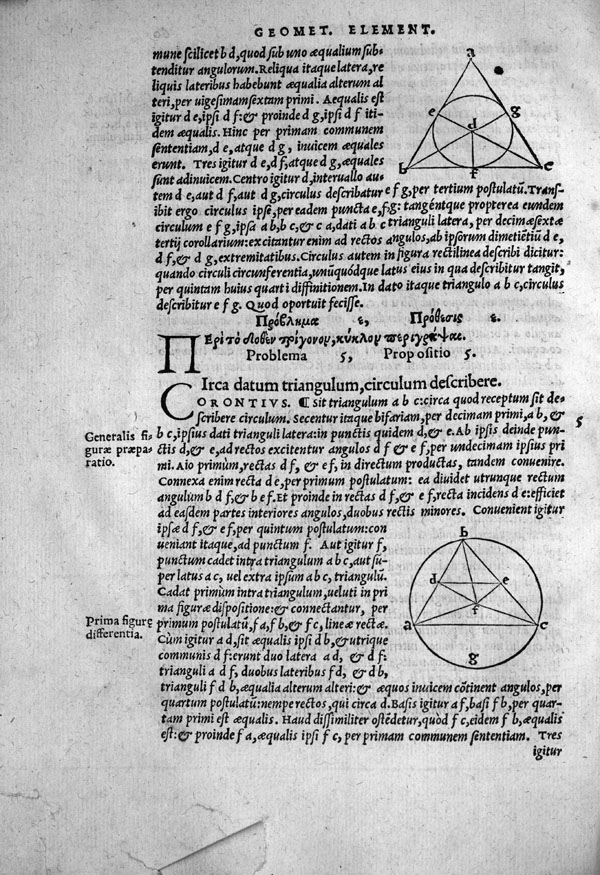 GEOMET. ELEMENT.
mune scilicet b d, quod sub uno æqualium sub-
tenditur angulorum. Reliqua itaque latera, re
liquis lateribus habebunt æqualia alterum al
teri, per uigesimamsextam primi. Aequalis est
igitur d e, ipsi d f: & proinde d g, ipsi d f iti-
dem æqualis. Hinc per primam communem
sententiam, d e, atque d g, inuicem æquales
erunt. Tres igitur d e, d f, atque d g, æquales
sunt adinuicem. Centro igitur d, interuallo au-
tem d e, aut d f, aut d g, circulus describatur e f g, per tertium postulatũ. Transi-
bit ergo circulus ipse, per eadem puncta e, f, g: tangétque propterea eundem
circulum e f g, ipsa a b, b c, & c a, dati a b c trianguli latera, per decimæsextæ
tertij corollarium: excitantur enim ad rectos angulos, ab ipsorum dimetiẽtiũ d e,
d f, & d g, extremitatibus. Circulus autem in figura rectilinea describi dicitur:
quando circuli circunferentia, unũquódque latus eius in qua describitur tangit,
per quintam huius quarti diffinitionem. In dato itaque triangulo a b c, circulus
describitur e f g. Quod oportuit fecisse.
Πρόβλημα ε, Πρόθεσις ε.
ΠΕρὶ τὸ δοθὲν τρίγωνον, κύκλον περιγράψαι.
Problema 5, Propositio 5.
CIrca datum triangulum, circulum describere.
CORONTIVS. ¶ Sit triangulum a b c: circa quod receptum sit de-
scribere circulum. Secentur itaque bifariam, per decimam primi, a b, &
b c, ipsius dati trianguli latera: in punctis quidem d, & e. Ab ipsis deinde pun-
ctis d, & e, ad rectos excitentur angulos d f & e f, per undecimam ipsius pri
mi. Aio primùm, rectas d f, & e f, in directum productas, tandem conuenire.
Connexa enim recta d e, per primum postulatum: ea diuidet utrunque rectum
angulum b d f, & b e f. Et proinde in rectas d f, & e f, recta incidens d e: efficiet
ad easdem partes interiores angulos, duobus rectis minores. Conuenient igitur
ipsæ d f, & e f, per quintum postulatum: con
ueniant itaque, ad punctum f. Aut igitur f,
punctum cadet intra triangulum a b c, aut su-
per latus a c, uel extra ipsum a b c, triangulũ.
Cadat primùm intra triangulum, ueluti in pri
ma figuræ dispositione: & connectantur, per
primum postulatũ, f a, f b, & f c, lineæ rectæ.
Cùm igitur a d, sit æqualis ipsi d b, & utrique
communis d f: erunt duo latera a d, & d f:
trianguli a d f, duobus lateribus f d, & d b,
trianguli f d b, æqualia alterum alteri: & æquos inuicem cõtinent angulos, per
quartum postulatũ: nempe rectos, qui circa d. Basis igitur a f, basi f b, per quar-
tam primi est æqualis. Haud dissimiliter ostẽdetur, quòd f c, eidem f b, æqualis
est: & proinde f a, æqualis ipsi f c, per primam communem sententiam. Tres
igitur
Generalis fi-
guræ præpa-
ratio.
Prima figuræ
differentia.
5
a
e
g
d
b
f
c
b
d
e
f
a
c
g